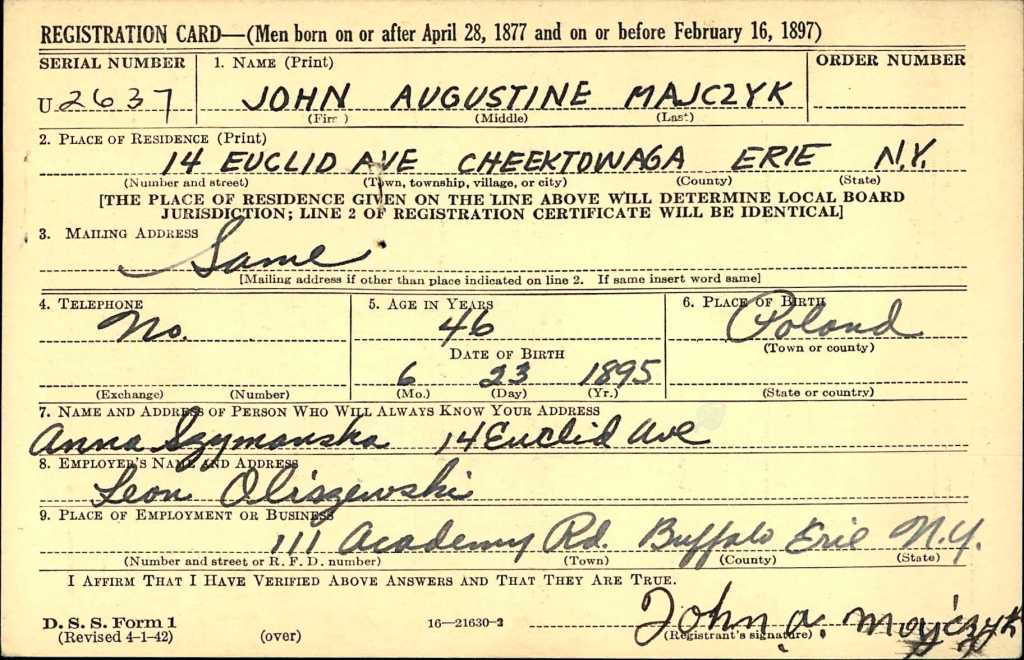 REGISTRATION CARD—(Men born on or after April 28, 1877 and on or before February 16, 1897)
SERIAL NUMBER 1. NAME (Print) ORDER NUMBER
U 2637 JOHN AUGUSTINE MAJCZYK
(First) (Middle) (Last)
2. PLACE OF RESIDENCE (Print)
14 EUCLID AVE CHEEKTOWAGA ERIE N.Y.
(Number and street) (Town, township, village, or city) (County) (State)
[THE PLACE OF RESIDENCE GIVEN ON THE LINE ABOVE WILL DETERMINE LOCAL BOARD
JURISDICTION; LINE 2 OF REGISTRATION CERTIFICATE WILL BE IDENTICAL]
3. MAILING ADDRESS
Same
[Mailing address if other than place indicated on line 2. If same insert word same]
4. TELEPHONE 5. AGE IN YEARS 6. PLACE OF BIRTH
No. 46 Poland
DATE OF BIRTH (Town or county)
6 23 1895
(Exchange) (Number) (Mo.) (Day) (Yr.) (State or country)
7. NAME AND ADDRESS OF PERSON WHO WILL ALWAYS KNOW YOUR ADDRESS
Anna Szymanska 14 Euclid Ave
8. EMPLOYER'S NAME AND ADDRESS
Leon Oliszewski
9. PLACE OF EMPLOYMENT OR BUSINESS
111 Academy Rd. Buffalo Erie N.Y.
(Number and street or R. F. D. number) (Town) (County) (State)
I AFFIRM THAT I HAVE VERIFIED ABOVE ANSWERS AND THAT THEY ARE TRUE.
D. S. S. Form 1 John A. Majczyk
(Revised 4-1-42) (over) 16—21630-2 (Registrant's signature)